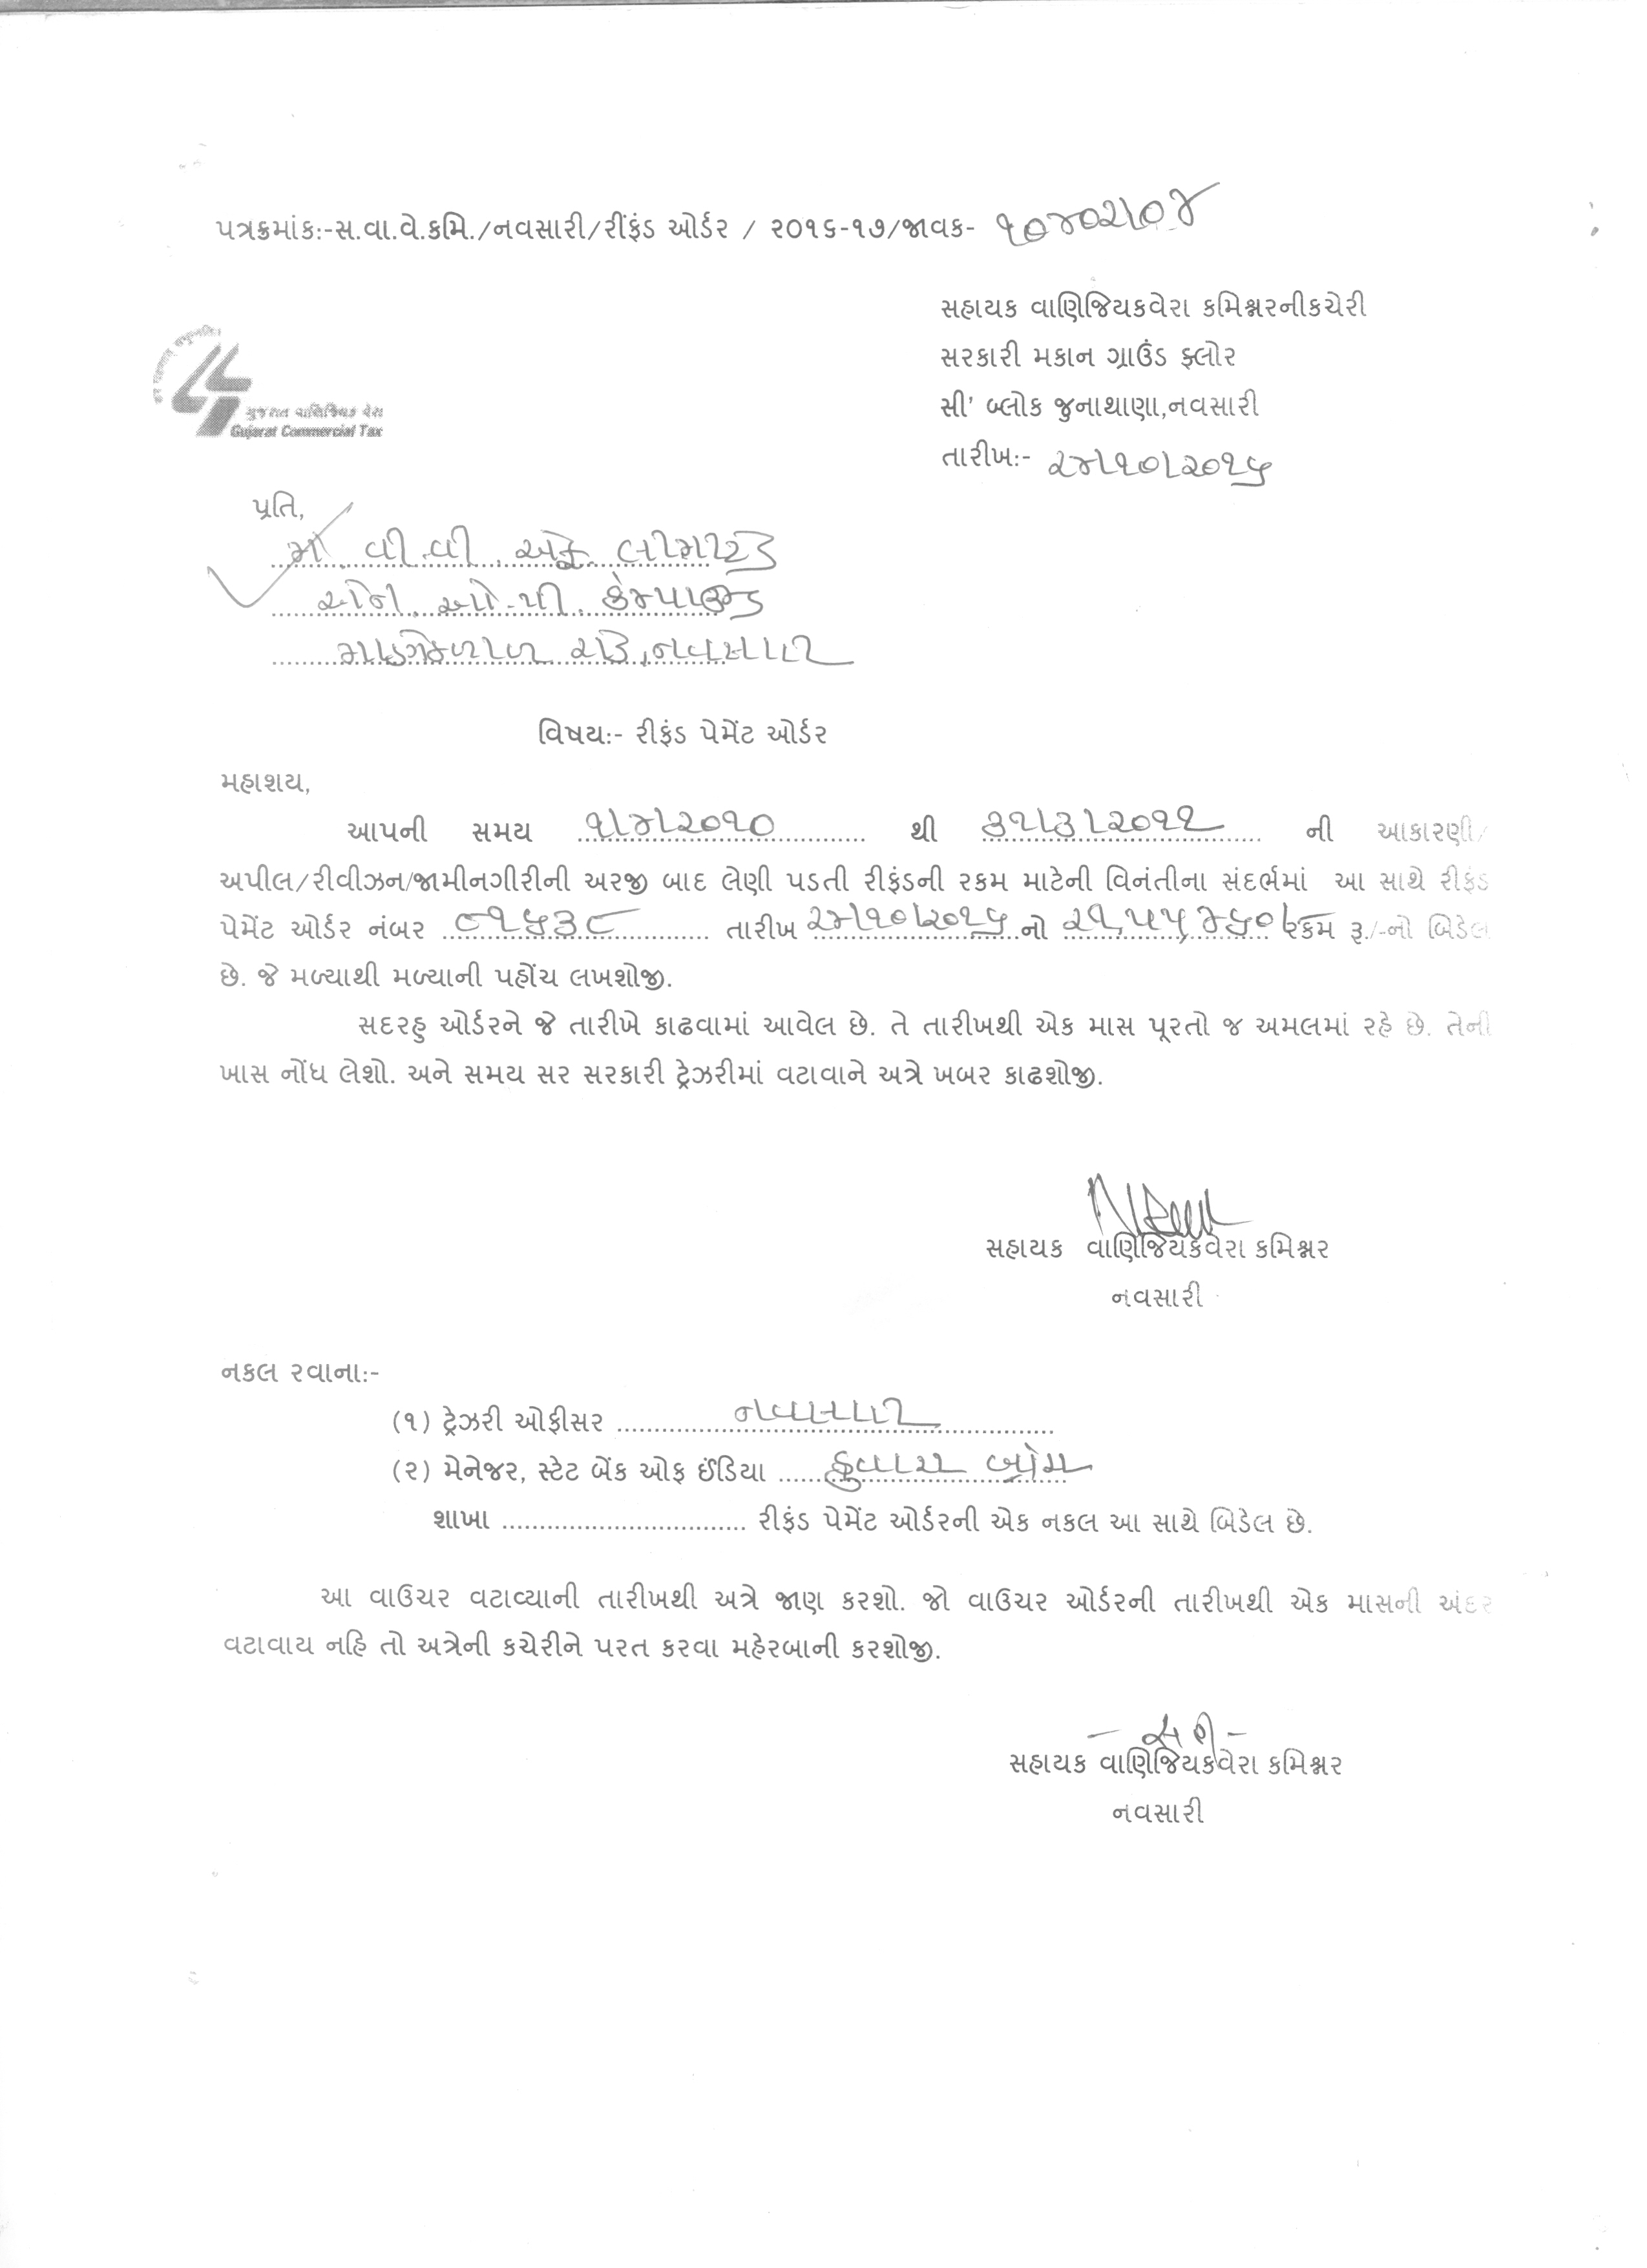 પત્રક્રમાંક:-સ.વા.વે.કમિ./નવસારી/રીંફંડ ઓર્ડર / ૨૦૧૬-૧૭/જાવક- ૧૦૪૦૨/૦૪
સહાયક વાણિજિયકવેરા કમિશ્નરનીકચેરી
સરકારી મકાન ગ્રાઉંડ ફ્લોર
ગુજરાત વાણિજ્યિક વેરા
સી' બ્લોક જુનાથાણા,નવસારી
Gujarat Commercial Tax
તારીખ:- ૨૪/૧૦/૨૦૧૬
પ્રતિ,
મે. વી.વી. એફ લીમીટેડ
એન. ઓ.પી. કંમ્પાઉન્ડ
રોડ, નવસારી
વિષય:- રીફંડ પેમેંટ ઓર્ડર
મહાશય,
આપની સમય ૧/૪/૨૦૧૦ થી ૩૧/૩/૨૦૧૧ ની આકારણી/
અપીલ/રીવીઝન/જામીનગીરીની અરજી બાદ લેણી પડતી રીફંડની રકમ માટેની વિનંતીના સંદર્ભમાં આ સાથે રીફંડ
પેમેંટ ઓર્ડર નંબર ૦૧૬૩૮ તારીખ ૨૪/૧૦/૨૦૧૬ નો ૨૧,૫૫,૪૬૦/- રકમ રૂ./-નો બિડેલ
છે. જે મળ્યાથી મળ્યાની પહોંચ લખશોજી.
સદરહુ ઓર્ડરને જે તારીખે કાઢવામાં આવેલ છે. તે તારીખથી એક માસ પૂરતો જ અમલમાં રહે છે. તેની
ખાસ નોંધ લેશો. અને સમય સર સરકારી ટ્રેઝરીમાં વટાવાને અત્રે ખબર કાઢશોજી.
સહાયક વાણિજિયકવેરા કમિશ્નર
નવસારી
નકલ રવાના:-
(૧) ટ્રેઝરી ઓફીસર નવસારી
(૨) મેનેજર, સ્ટેટ બેંક ઓફ ઈંડિયા ફુવારા બ્રાંચ
શાખા ................................ રીફંડ પેમેંટ ઓર્ડરની એક નકલ આ સાથે બિડેલ છે.
આ વાઉચર વટાવ્યાની તારીખથી અત્રે જાણ કરશો. જો વાઉચર ઓર્ડરની તારીખથી એક માસની અંદર
વટાવાય નહિ તો અત્રેની કચેરીને પરત કરવા મહેરબાની કરશોજી.
- સહી -
સહાયક વાણિજિયકવેરા કમિશ્નર
નવસારી